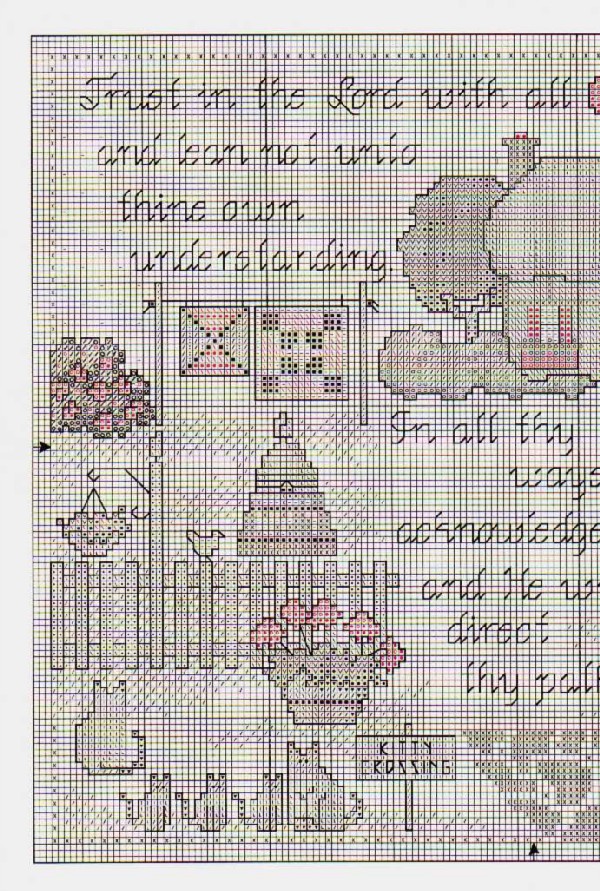 Trust in the Lord with all
and lean not unto
thine own
understanding.
In all thy
ways
acknowledge
and He
direct
thy
KITTY
CROSSING